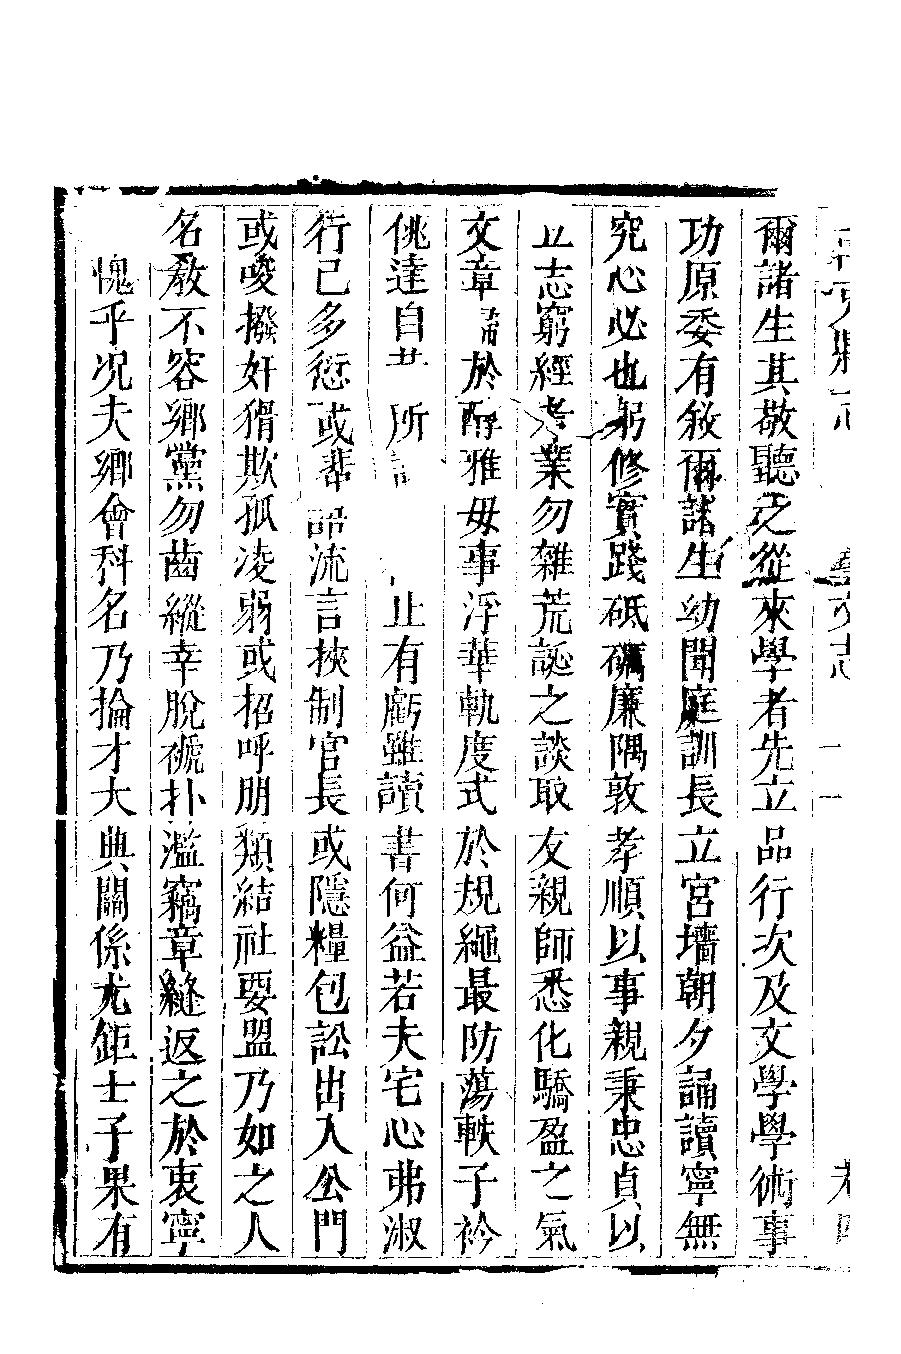 爾諸生其敬聽之從來學者先立品行次及文學學術事
功原委有敘爾諸生幼聞庭訓長立宮墻朝夕誦讀寧無
究心必也躬修實踐砥礪廉隅敦孝順以事親秉忠貞以
立志窮經考業勿雜荒誕之談取友親師悉化驕盈之氣
文章歸於醇雅毋事浮華軌度式於規繩最防蕩軼子衿
佻達自 所 止有虧雖讀書何益若夫宅心弗淑
行己多愆或蜚 流言挾制官長或隱糧包訟出入公門
或唆撥奸猾欺孤凌弱或招呼朋類結社要盟乃如之人
名教不容鄉黨勿齒縱幸脫褫扑濫竊章縫返之於衷寧
愧乎况夫鄉會科名乃掄才大典關係尤鉅士子果有